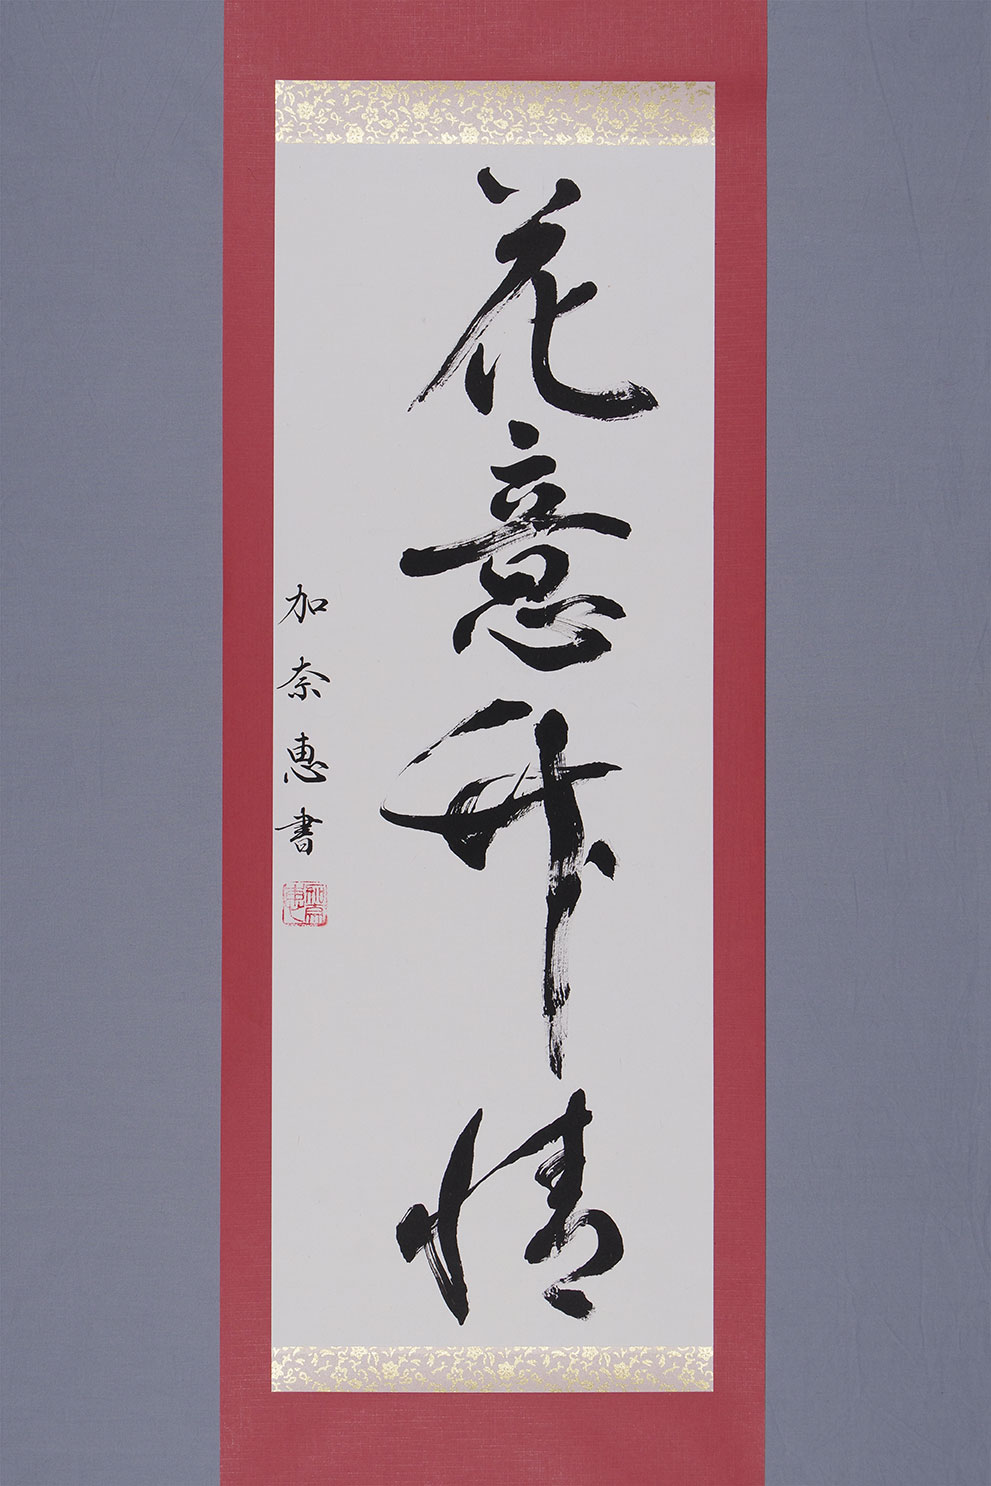 花意竹情
加奈恵書